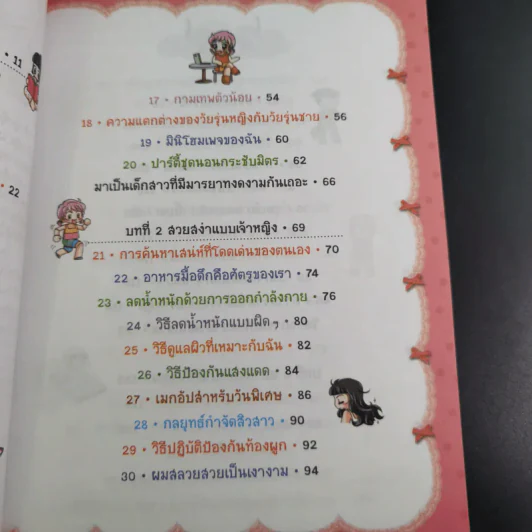 • 11
• 22
17 • กามเทพตัวน้อย • 54
18 • ความแตกต่างของวัยรุ่นหญิงกับวัยรุ่นชาย • 56
19 • มินิโฮมเพจของฉัน • 60
20 • ปาร์ตี้ชุดนอนกระชับมิตร • 62
มาเป็นเด็กสาวที่มีมารยาทงดงามกันเถอะ • 66
บทที่ 2 สวยสง่าแบบเจ้าหญิง • 69
21 • การค้นหาเสน่ห์ที่โดดเด่นของตนเอง • 70
22 • อาหารมื้อดึกคือศัตรูของเรา • 74
23 • ลดน้ำหนักด้วยการออกกำลังกาย • 76
24 • วิธีลดน้ำหนักแบบผิดๆ • 80
25 • วิธีดูแลผิวที่เหมาะกับฉัน • 82
26 • วิธีป้องกันแสงแดด • 84
27 • เมกอัปสำหรับวันพิเศษ • 86
28 • กลยุทธ์กำจัดสิวสาว • 90
29 • วิธีปฏิบัติป้องกันท้องผูก • 92
30 • ผมสลวยสวยเป็นเงางาม • 94